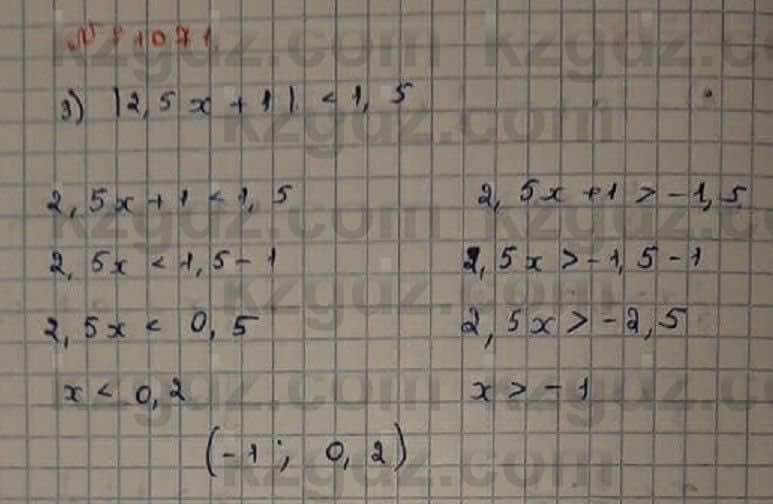 № 1071
3) |2,5x + 1| < 1,5
2,5x + 1 < 1,5 2,5x + 1 > -1,5
2,5x < 1,5 - 1 2,5x > -1,5 - 1
2,5x < 0,5 2,5x > -2,5
x < 0,2 x > -1
(-1; 0,2)
kzgdz.com